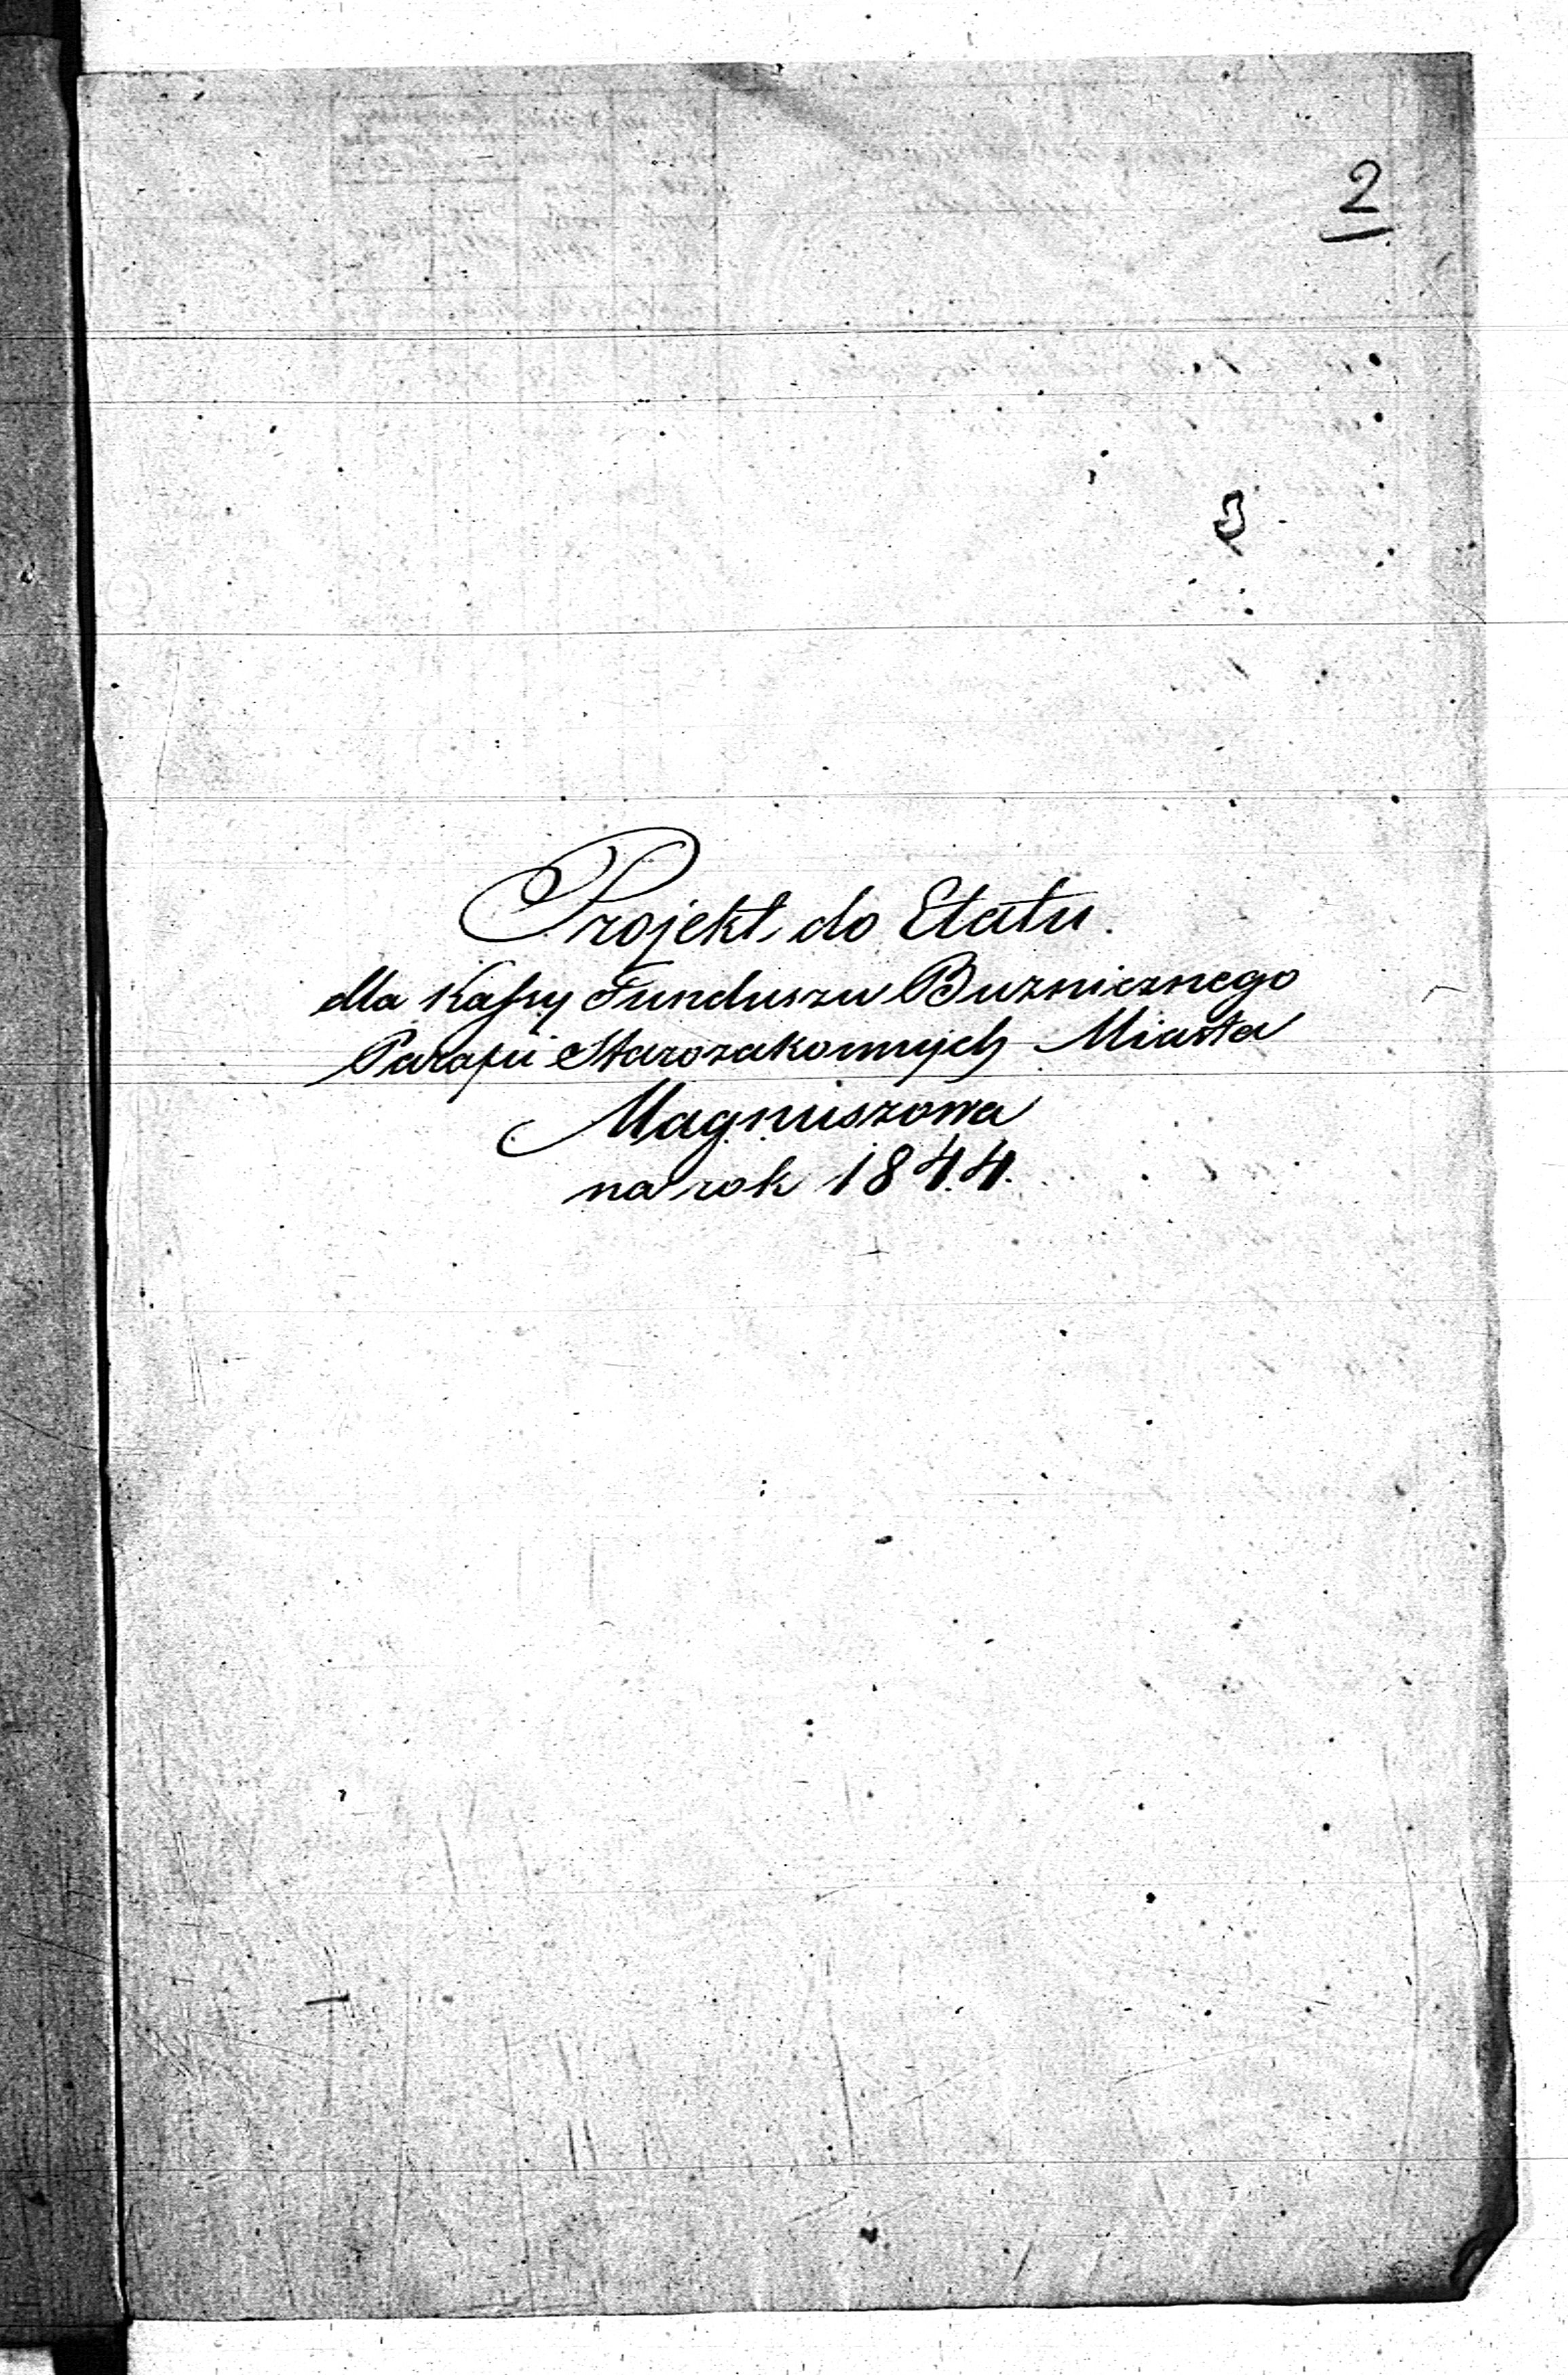 2
Projekt do Etatu.
dla Kassy Funduszu Buznicznego
Parafii Starozakonnych Miasta
Magnuszewa
na rok 1844.